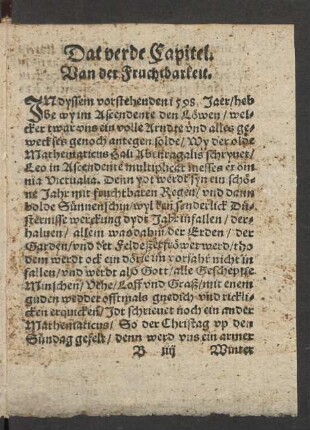 Dat verde Capitel.
Van der Fruchtbarkeit.
INdyssem vorstehenden 1598. Jaer/heb
be wy im Ascendente den Löwen/wel-
cker twar vns ein volle Arndte vnd alles ge-
weckses genoch antögen solde/Wy der olde
Mathematicus Hali Abenragalis schryuet/
Leo in Ascendente multiplicat messes et om-
nia Victualia. Denn ydt werdt syn ein schö-
ne Jahr mit fruchtbaren Regen/vnd dann
holde Sünnenschin/wyl ken sonderlick Dü-
sternisse werckung dydt Jahr infallen/der-
haluen/allem was dahin der Erden/der
Garden/vnd der Felde
dem werdt ock ein dörre im vorjahr nicht in
fallen/vnd werdt also Gott/alle Geschepffe
Minschen/Vehe/Loff vnd Graß/mit enem
guden wedder offtmals gnedich vnd rickli-
cken erquicken/Idt schriuet noch ein ander
Mathematicus/So der Christag vp den
Sündag gefelt/denn werd vns ein armer
B iiij Winter